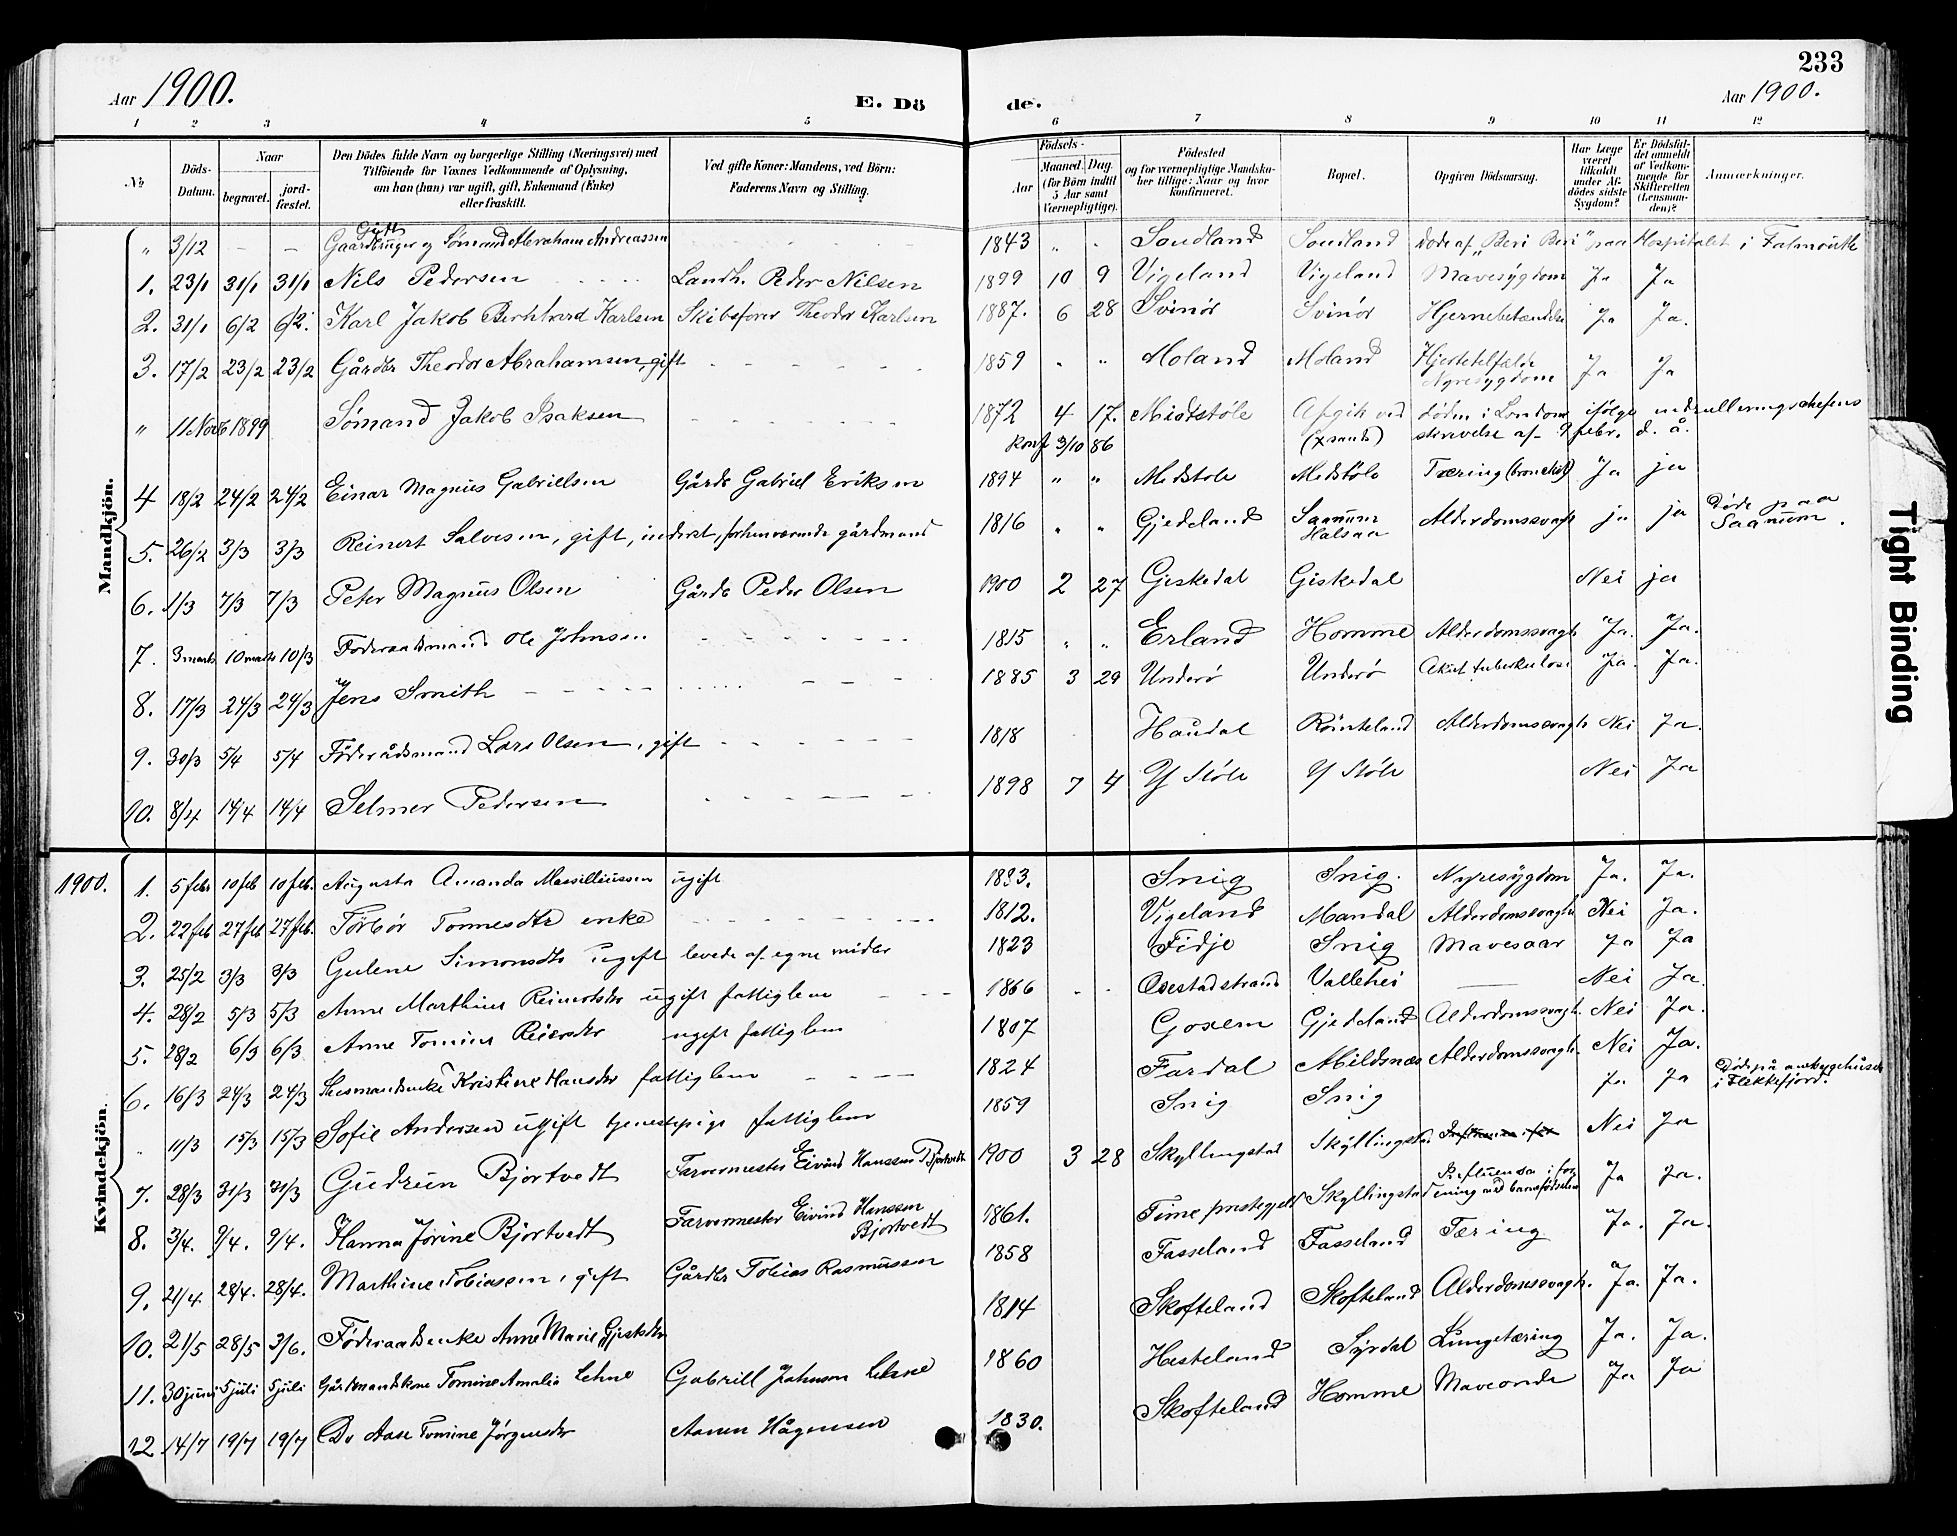 233
Aar 1900.
E. Dö de.
Aar 1900.
1 2 3 4 5 6 7 8 9 10 11 12
No
Döds-Datum.
Naar
begravet.
jord-fæstet.
Den Dödes fulde Navn og borgerlige Stilling (Næringsvei) med
Tilföiende for Voxnes Vedkommende af Oplysning,
om han (hun) var ugift, gift, Enkemand (Enke)
eller fraskilt.
Ved gifte Koner: Mandens, ved Börn:
Faderens Navn og Stilling.
Födsels-
Aar
Maaned. Dag.
(for Börn indtil 5 Aar samt Værnepligtige).
Födested
og for værnepligtige Mandskaber tillige: Naar og hvor konfirmeret.
Bopæl.
Opgiven Dödsaarsag.
Har Læge været tilkaldt under Afdödes sidste Sygdom?
Er Dödsfaldet anmeldt af Vedkommende for Skifteretten (Lensmanden)?
Anmærkninger.
Mandkjön.
" 3/12 - - Gift Gaardbruger og Sømand Abraham Andreassen 1843 " " Soudland Soudland Døde af "Beri Beri" paa Hospitalet i Falmouth
1. 23/1 31/1 31/1 Nils Pedersen Landh. Peder Nilsen 1899 10 9 Vigeland Vigeland Mavesygdom Ja Ja
2. 31/1 6/2 6/2. Karl Jakob Bernhard Karlsen Skibsfører Theodor Karlsen 1887. 6 28 Svinör Svinör Hjernebetændelse Ja Ja.
3. 17/2 23/2 23/2 Gårdbr Theodor Abrahamsen, gift 1859 " " Moland Moland Hjertetilfælde Nyresygdom Ja Ja
" 11 Novb 1899 Sömand Jakob Isaksen 1872 4 17. Midtstöle Afgik ved döden i London ifölge indrulleringschefens
konf 3/10 86 (X sand) skrivelse af 9 febr. d. å.
4 18/2 24/2 24/2 Einar Magnus Gabrielsen Gårdb Gabriel Eriksen 1894 " " Midtstöle Midtstöle Tæring (bronchit) Ja ja
5. 26/2 3/3 3/3 Reinert Salvesen, gift, inderst, forhenværende gårdmand 1816 " " Gjedeland Saanum Halsaa Alderdomssvagh ja ja Døde paa Saanum.
6. 1/3 7/3 7/3 Peter Magnus Olsen Gårdb Peder Olsen 1900 2 27 Gjeskedal Giskedal Nei ja
7. 3 marts 10 marts 10/3 Föderaadsmand Ole Johnsen 1815 " " Erland Homme Alderdomssvagh Ja. Ja.
8. 17/3 24/3 24/3 Jens Smith 1885 3 29 Underö Underö Akut tuberkulose Ja. Ja.
9. 30/3 5/4 5/4 Föderådsmand Lars Olsen, gift 1818 Haudal Rönteland Alderdomssvagh Nei Ja.
10. 8/4 14/4 14/4 Selmer Pedersen 1898 7 4 Y Stöle Y Stöle Nei Ja
Kvindekjön.
1900. 1. 5 febr 10 feb 10 feb. Augusta Amanda Massilliussen ugift 1883. Snig Snig. Nyresygdom Ja. Ja.
2. 22 feb 27 feb 27 feb. Törbör Tönnesdtr enke 1812. Vigeland Mandal Alderdomssvagh Nei Ja.
3. 25/2 3/3 3/3 Gulene Simonsdtr ugift levede af egne midler 1823 Fidje Snig Mavesaar Ja Ja
4. 28/2 5/3 5/3 Anne Marthine Reinertsdtr ugift fattiglem 1866 Osestadstrand Vallehei Nei Ja.
5. 28/2 6/3 6/3 Anne Tomine Reiersdtr ugift fattiglem 1807 Goxem Gjedeland Alderdomssvagh. Nei Ja.
6. 16/3 24/3 24/3 Husmandsenke Kristine Hansdtr fattiglem 1824 Fardal Mildsnes Alderdomssvagh. Nei Ja.
" 11/3 15/3 15/3 Sofie Andersen ugift tjenestepige fattiglem 1859 Snig Snig Ja Ja Döde på amtsygehuset i Flekkefjord.
7. 28/3 31/3 31/3 Gudrun Bjortvedt Farvermester Eivind Hanssen Bjortvedt 1900 3 28 Skyllingstad Skyllingstad Nei Ja
8. 3/4. 9/4. 9/4. Hanna Jörine Bjortvedt Farvermester Eivind Hanssen Bjortvedt 1861. Time prestegjeld Skyllingstad Influensa i forening med barnsfödselen Ja Ja.
9. 21/4 28/4. 28/4. Marthine Tobiassen, gift Gårdbr Tobias Rasmussen 1858 Fasseland Fasseland Tæring Ja. Ja.
10. 21/5 28/5 3/6. Föderaadsenke Anne Marie Gjertsdtr 1814 Skofteland Skofteland Alderdomssvagh. Ja. Ja.
11. 30 juni 5 juli 5 juli Gårdmandskone Tomine Amalia Lehne Gabriell Johnson Lehne 1860 Hesteland Syrdal Lungetæring Ja. Ja.
12 14/7 19/7 19/7 Do Aase Tomine Jörgensdtr Aanen Hågensen 1830. Skofteland Homme Maveonde Ja Ja
Tight Binding